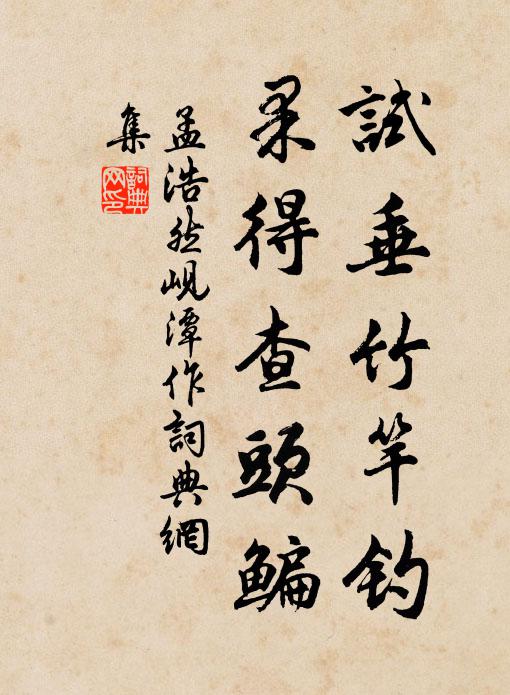 試垂竹竿釣
果得查頭鯿
孟浩然峴潭作詞典網
集
詞典网印